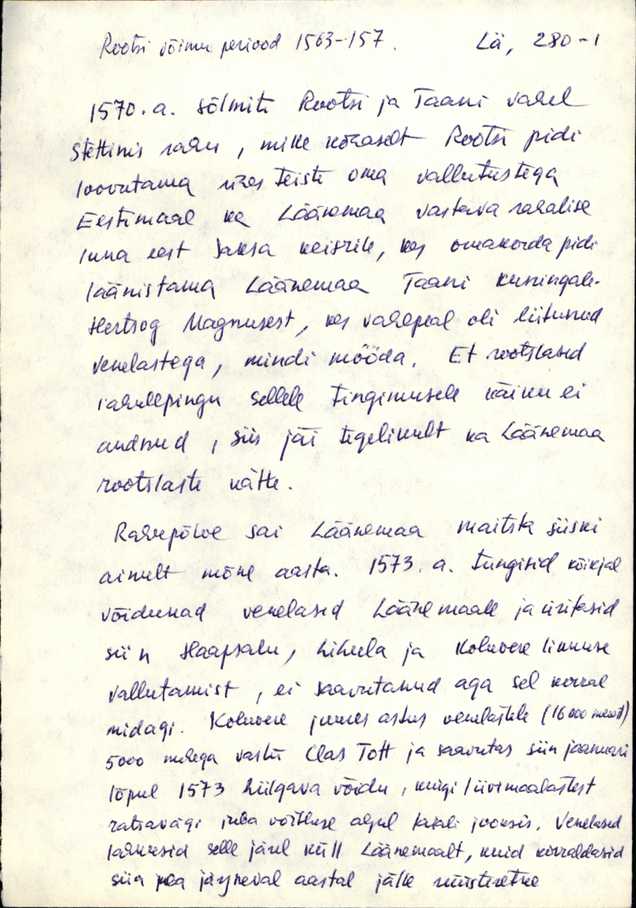 Rootsi võimu periood 1563-157.
Lä, 280-1
1570. a. sõlmiti Rootsi ja Taani vahel
Stettinis rahu, mille kohaselt Rootsi pidi
loovutama ühes teiste oma vallutustega
Eestimaal ka Läänemaa vastava rahalise
luna eest Saksa keisrile, kes omakorda pidi
läänistama Läänemaa Taani kuningale.
Hertsog Magnusest, kes vahepeal oli liitunud
venelastega, mindi mööda. Et rootslased
rahulepingu sellele tingimusele käiku ei
andnud, siis jäi tegelikult ka Läänemaa
rootslaste kätte.
Rahupõlve sai Läänemaa maitsta siiski
ainult mõne aasta. 1573. a. tungisid kõikjal
võidunud venelased Läänemaale ja üritasid
siin Haapsalu, Lihula ja Koluvere linnuse
vallutamist, ei saavutanud aga sel korral
midagi. Koluvere juures astus venelastele (16 000 meest)
5000 mehega vastu Clas Tott ja saavutas siin jaanuari
lõpul 1573 hiilgava võidu, kuigi liivimaalastest
ratsavägi juba võitluse algul pakku jooksis. Venelased
lahkusid selle järel küll Läänemaalt, kuid korraldasid
siia pea järgneval aastal jälle